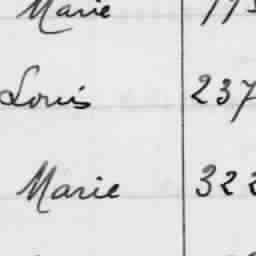 Marie 113
Louis 237
Marie 322